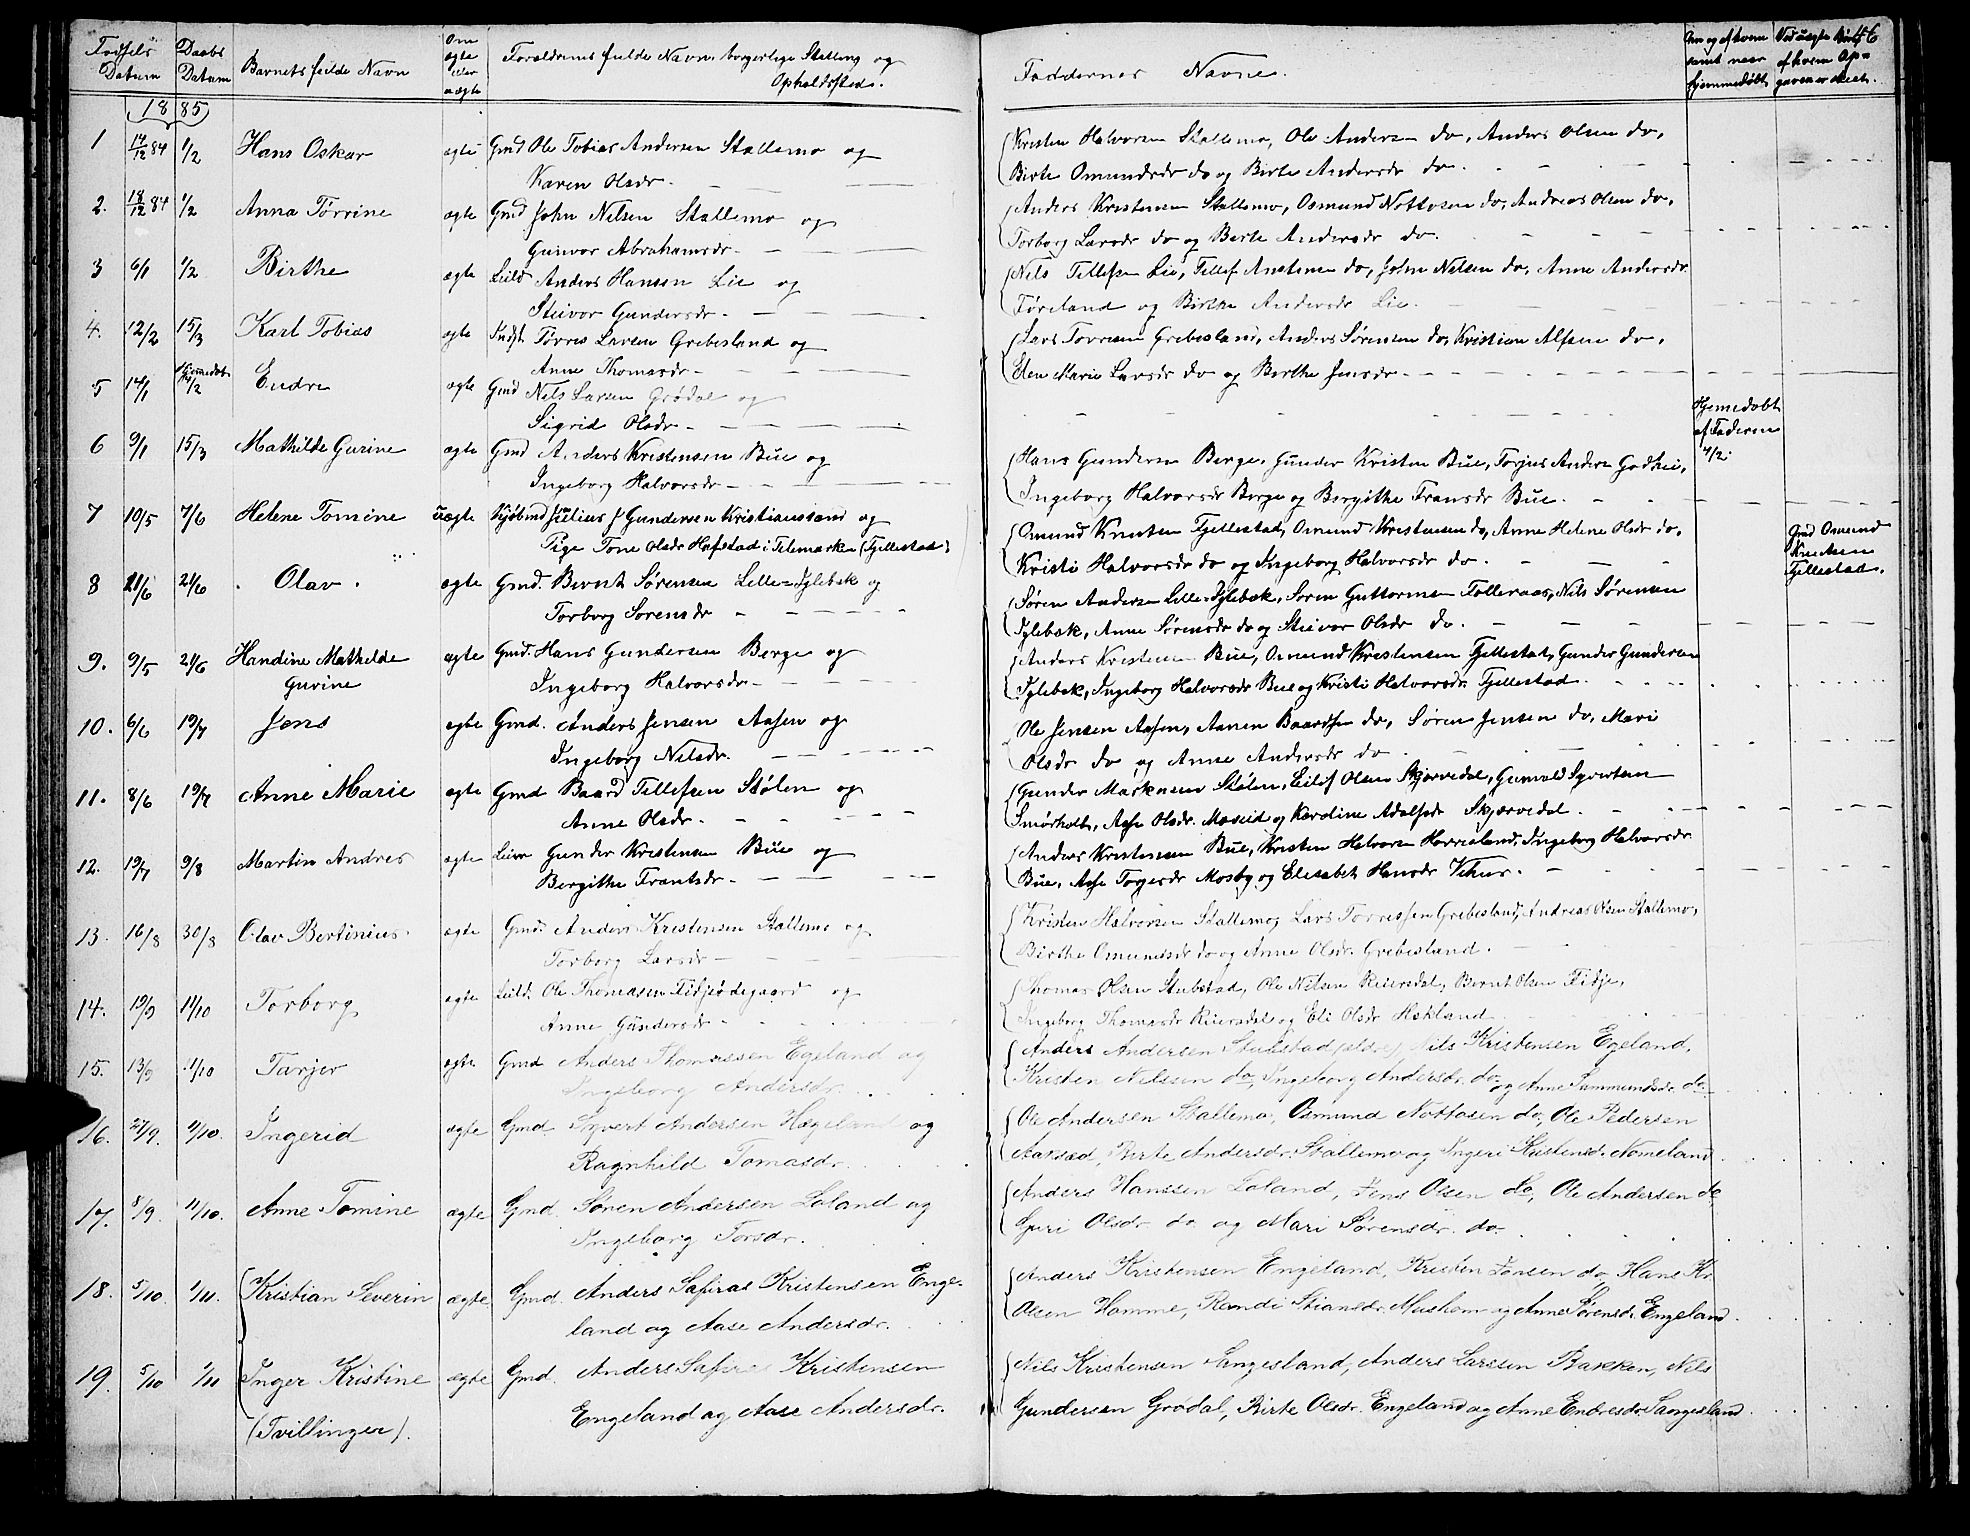 46
Fødsels Datum | Daabs Datum | Barnets fulde Navn | Om ægte eller uægte | Forældrenes fulde Navn, borgerlige Stilling og Opholdssted. | Faddernes Navne. | Om og af hvem samt naar hjemmedøbt | Ved uægte Børn, af hvem Opgaven er skeet.
1885
1 14/12 84 1/2 Hans Oskar ægte Gmd Ole Tobias Andersen Stallemo og
Karen Olsdr.
Kristen Halvorsen Stallemo, Ole Andersen do, Anders Olsen do,
Birte Omundsdr do og Birte Andersdr do.
2. 18/12 84 1/2 Anna Tørrine ægte Gmd John Nilsen Stallemo og
Gunvor Abrahamsdr.
Anders Kristensen Stallemo, Osmund Nottosen do, Andreas Olsen do,
Torborg Larsdr do og Berte Andersdr do.
3 6/1 1/2 Birthe ægte Leild Anders Hansen Lie og
Steivor Gundersdr.
Nils Tellefsen Lie, Tellef Anstensen do, John Nilsen do, Anne Andersdr.
Føreland og Birthe Andersdr Lie.
4. 12/2 15/3 Karl Tobias ægte Indst. Tørres Larsen Grebesland og
Anne Thomasdr.
Lars Torresen Grebesland, Anders Sørensen do, Kristian Alfsen do,
Elen Marie Larsdr do og Berthe Jensdr.
5 14/1 Hjemmedøbt 4/2 Endre ægte Gmd Nils Larsen Grødal og
Sigrid Olsdr.
Hjemedøbt
af Faderen
4/2.
6 9/1 15/3 Mathilde Gurine ægte Gmd Anders Kristensen Bue og
Ingeborg Halvorsdr.
Hans Gundersen Berge, Gunder Kristen Bue, Torjus Anders Godhei,
Ingeborg Halvorsdr Berge og Bergithe Fransdr Bue.
7 10/5 7/6 Helene Tomine uægte Kjøbmd Julius J Gundersen Kristianssand og
Pige Tone Olsdr Hafstad i Telemarken (Fjellestad)
Omund Knutsen Fjellestad, Omund Kristensen do, Anne Helene Olsdr do,
Kristi Halvorsdr do og Ingeborg Halvorsdr do.
Gmd Osmund
Knutsen
Fjellestad.
8 21/6 21/6 Olav. ægte Gmd. Bernt Sørensen Lille-Iglebæk og
Torborg Sørensdr
Søren Andersen Lille-Iglebæk, Soren Guttormsen Folleraas, Nils Sørensen
Iglebæk, Anne Sørensdr do og Steivor Olsdr do.
9. 9/5 21/6 Handine Mathilde
Gurine
ægte Gmd. Hans Gundersen Berge og
Ingeborg Halvorsdr.
Anders Kristensen Bue, Omund Kristensen Fjellestad, Gunder Gundersen
Iglebæk, Ingeborg Halvorsdr Bue og Kristi Halvorsdr. Fjellestad.
10. 6/6 19/7 Jens ægte Gmd. Anders Jensen Aasen og
Ingeborg Nilsdr.
Ole Jensen Aasen, Aanen Baardsen do, Søren Jensen do, Mari
Olsdr do og Anne Andersdr do.
11. 8/6 19/7 Anne Marie ægte Gmd Baard Tellefsen Stølen og
Anne Olsdr.
Gunder Markusen Stølen, Eilef Olsen Skjærvedal, Gunvald Syvertsen
Smørholt, Aase Olsdr. Moseid og Karoline Adolfsdr Skjærvedal.
12. 19/7 9/8 Martin Andres ægte Leier Gunder Kristensen Bue og
Bergithe Frantsdr.
Anders Kristensen Bue, Kristen Halvorsen Horrisland, Ingeborg Halvorsdr.
Bue, Aase Torgersdr Mosby og Elisabet Hansdr Vehus.
13. 16/8 30/8 Olav Bertinius. ægte Gmd. Anders Kristensen Stallemo og
Torborg Larsdr
Kristen Halvorsen Stallemo, Lars Torressen Grebesland, Andreas Olsen Stallemo,
Birthe Omundsdr do og Anne Olsdr. Grebesland.
14. 19/9 11/10 Torborg ægte Leild. Ole Thomassen Fidjeødegaard og
Anne Gundersdr
Thomas Olsen Stubstad, Ole Nilsen Reiersdal, Bernt Olsen Fidje,
Ingeborg Thomasdr Reiersdal og Eli Olsdr Høkland
15. 13/9 11/10 Tarjer ægte Gmd Anders Thomassen Egeland og
Ingeborg Andersdr.
Anders Andersen Stubstad (eldre), Nils Kristensen Egeland,
Kristen Nilssen do, Ingeborg Andersdr. do og Anne Gunmundsdr. do
16. 27/9. 11/10. Ingerid ægte Gmd Syvert Andersen Hægeland og
Ragnhild Tomasdr.
Ole Andersen Stallemo, Osmund Nottosen do, Ole Pedersen
Aaxsæd, Birte Andersdr. Stallemo og Ingeri Kristensdr. Nomeland
17. 8/9. 11/10. Anne Tomine ægte Gmd. Søren Andersen Loland og
Ingeborg Torsdr.
Anders Hanssen Loland, Jens Olsen do, Ole Andersen do
Guri Olsdr. do. og Mari Sørensdr. do.
18. 5/10. 1/11. Kristian Severin ægte Gmd. Anders Safiras Kristensen Enge-
land og Aase Andersdr.
Anders Kristensen Engeland, Kristen Jensen do, Hans Kr.
Olsen Homme, Randi Stiansdr. Mushom og Anne Sørensdr. Engeland
19. 5/10 1/11 Inger Kristine
(Tvillinger).
ægte Gmd. Anders Safiras Kristensen
Engeland og Aase Andersdr.
Nils Kristensen Sangesland, Anders Larssen Bakken, Nils
Gundersen Grødal, Birte Olsdr. Engeland og Anne Endresdr. Sangesland